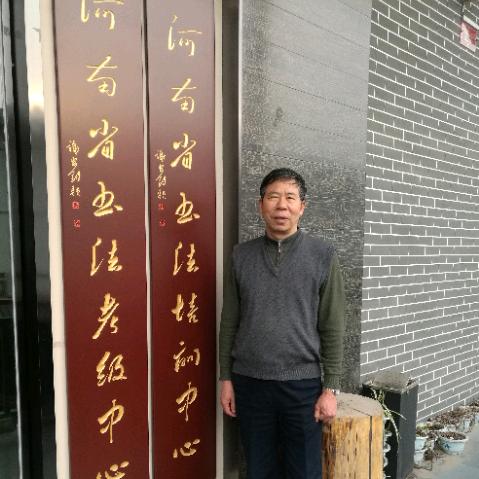 河南省书法考级中心
河南省书法培训中心